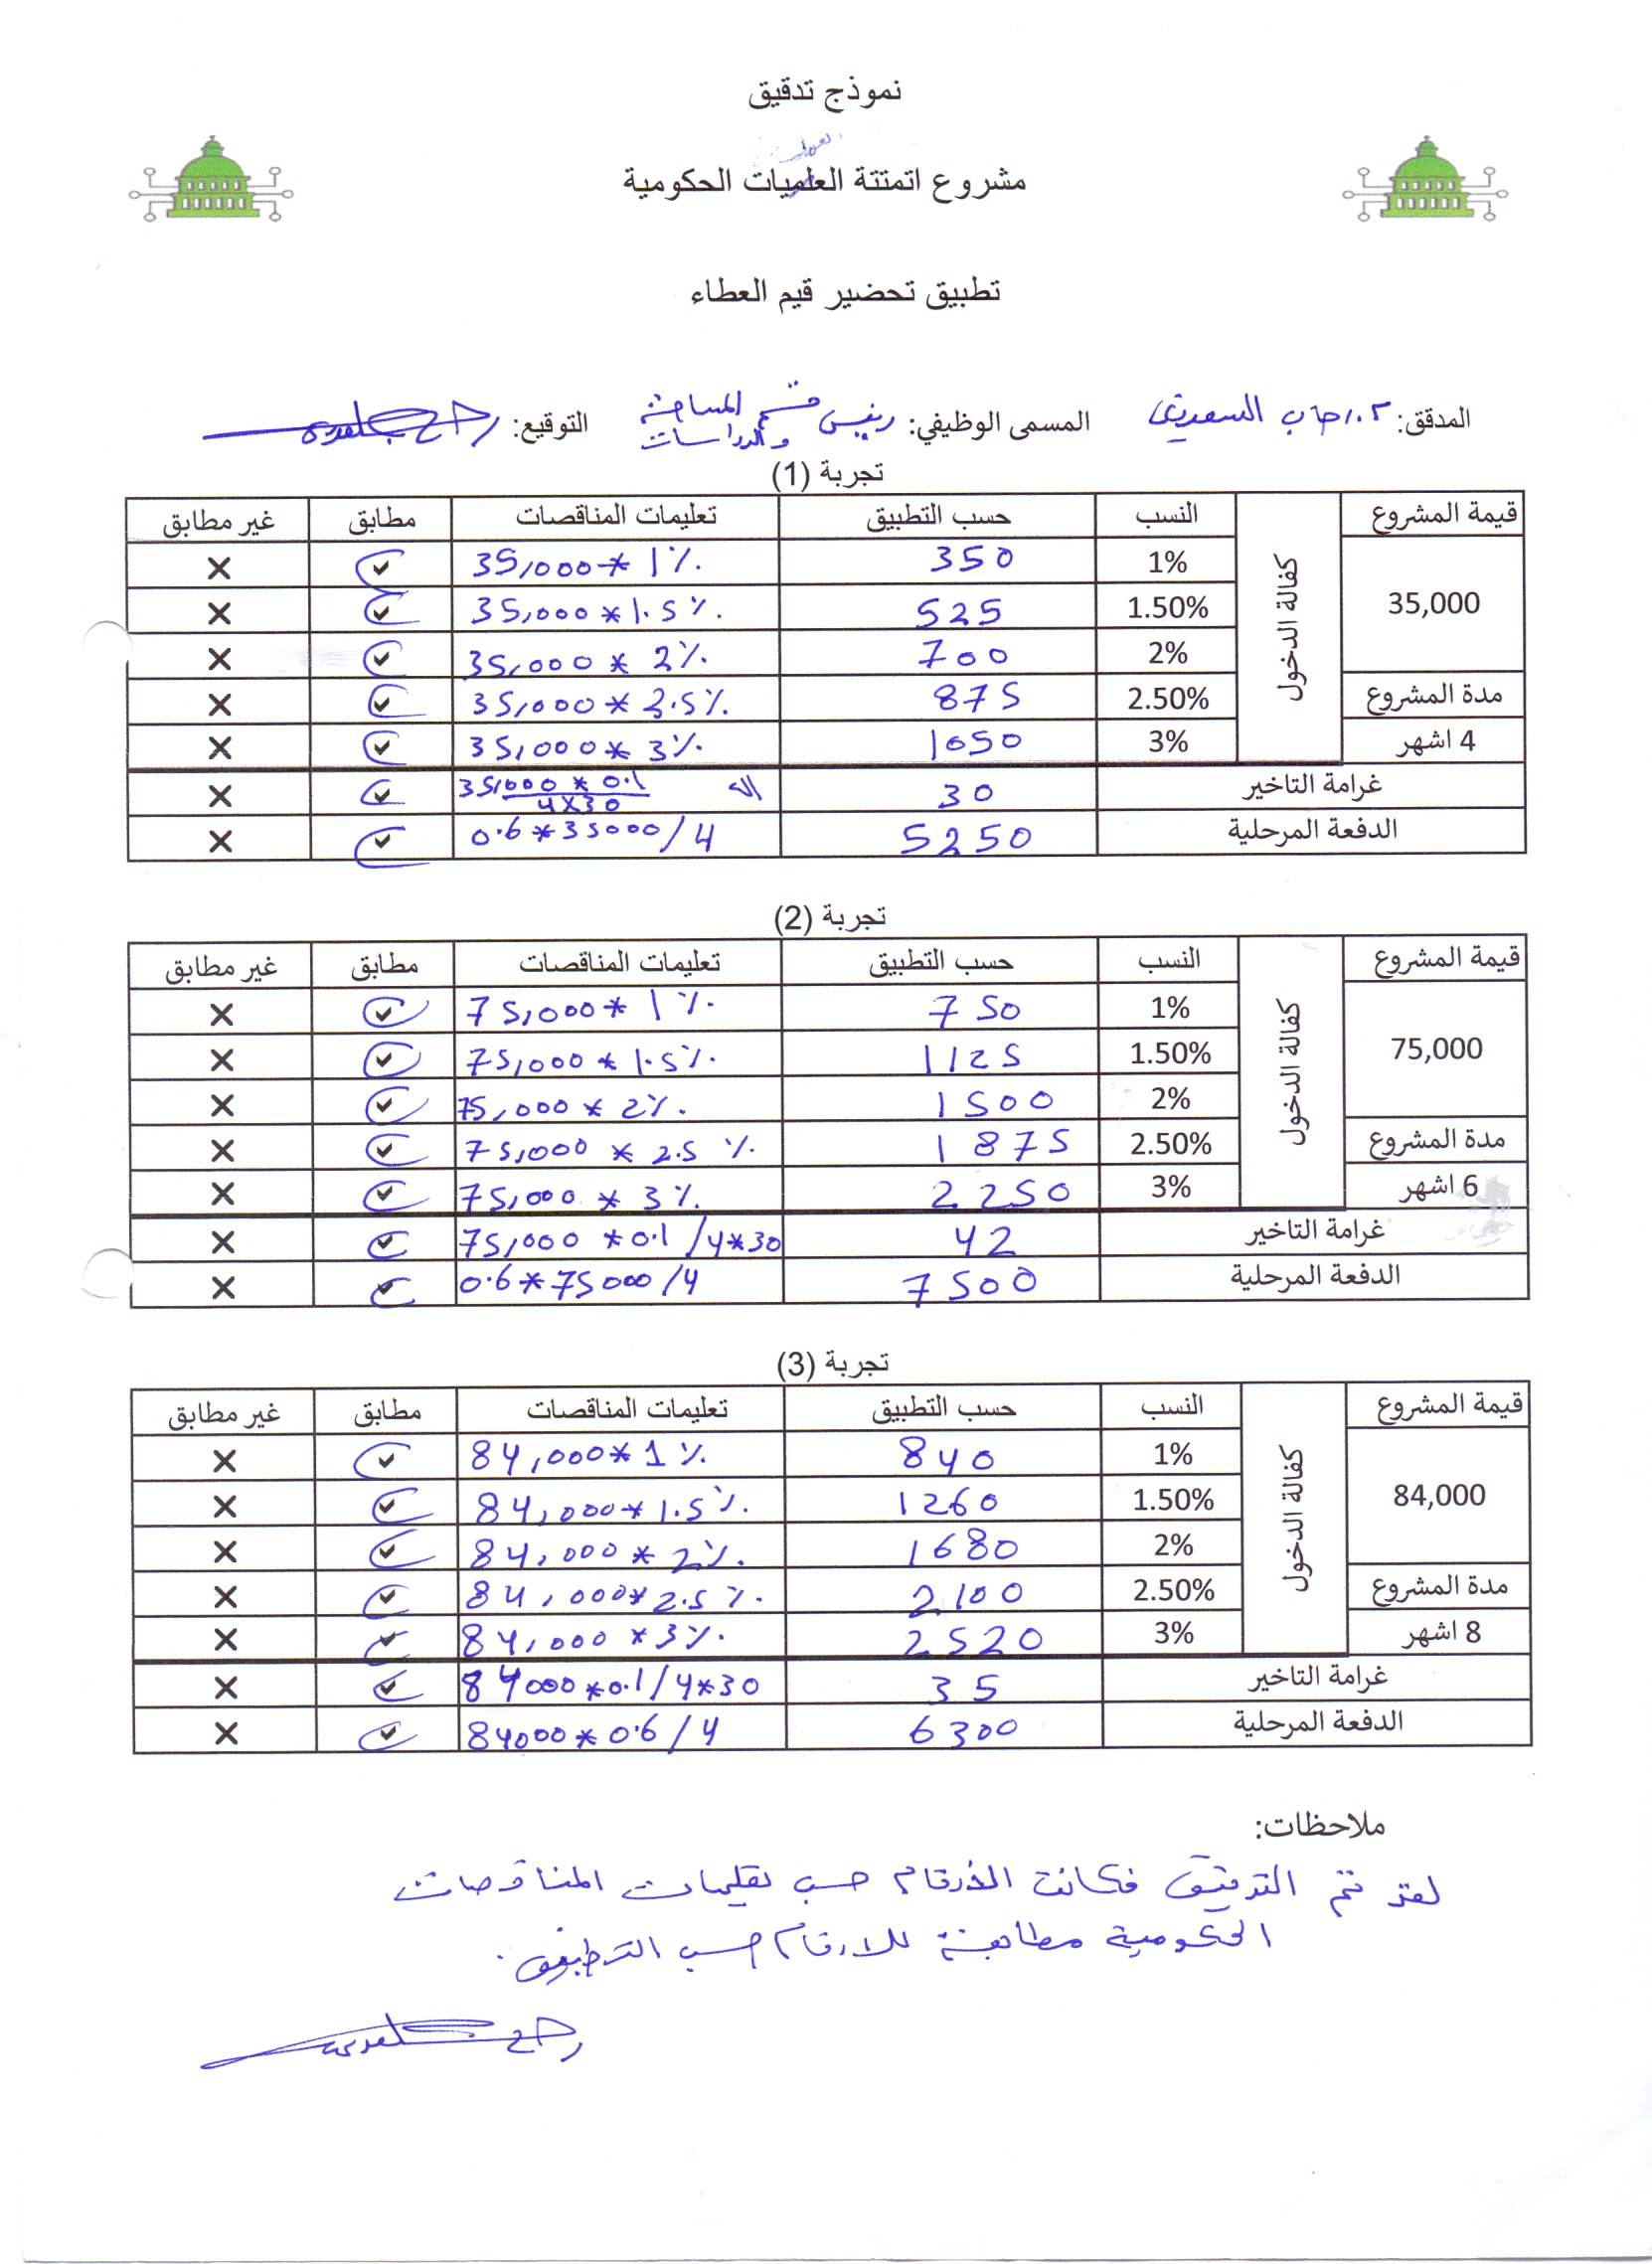 نموذج تدقيق
مشروع اتمتتة العلميات الحكومية
تطبيق تحضير قيم العطاء
المدقق: م. رحاب السعدية المسمى الوظيفي: رئيس قسم المساحة والدراسات التوقيع:
تجربة (1)
قيمة المشروع كفالة الدخول النسب حسب التطبيق تعليمات المناقصات مطابق غير مطابق
35,000 1% 350 35,000 * 1% ✔ ×
1.50% 525 35,000 * 1.5% ✔ ×
2% 700 35,000 * 2% ✔ ×
مدة المشروع 2.50% 875 35,000 * 2.5% ✔ ×
4 اشهر 3% 1050 35,000 * 3% ✔ ×
غرامة التاخير 30 35,000 * 0.1 / 4x30 ✔ ×
الدفعة المرحلية 5250 0.6 * 35000/4 ✔ ×
تجربة (2)
قيمة المشروع كفالة الدخول النسب حسب التطبيق تعليمات المناقصات مطابق غير مطابق
75,000 1% 750 75,000 * 1% ✔ ×
1.50% 1125 75,000 * 1.5% ✔ ×
2% 1500 75,000 * 2% ✔ ×
مدة المشروع 2.50% 1875 75,000 * 2.5% ✔ ×
6 اشهر 3% 2250 75,000 * 3% ✔ ×
غرامة التاخير 42 75,000 * 0.1 / 4*30 ✔ ×
الدفعة المرحلية 7500 0.6 * 75000/4 ✔ ×
تجربة (3)
قيمة المشروع كفالة الدخول النسب حسب التطبيق تعليمات المناقصات مطابق غير مطابق
84,000 1% 840 84,000 * 1% ✔ ×
1.50% 1260 84,000 * 1.5% ✔ ×
2% 1680 84,000 * 2% ✔ ×
مدة المشروع 2.50% 2100 84,000 * 2.5% ✔ ×
8 اشهر 3% 2520 84,000 * 3% ✔ ×
غرامة التاخير 35 84000 * 0.1 / 4*30 ✔ ×
الدفعة المرحلية 6300 84000 * 0.6 / 4 ✔ ×
ملاحظات:
لقد تم التدقيق فكانت الأرقام حسب تعليمات المناقصات
الحكومية مطابقة للارقام حسب التطبيق.